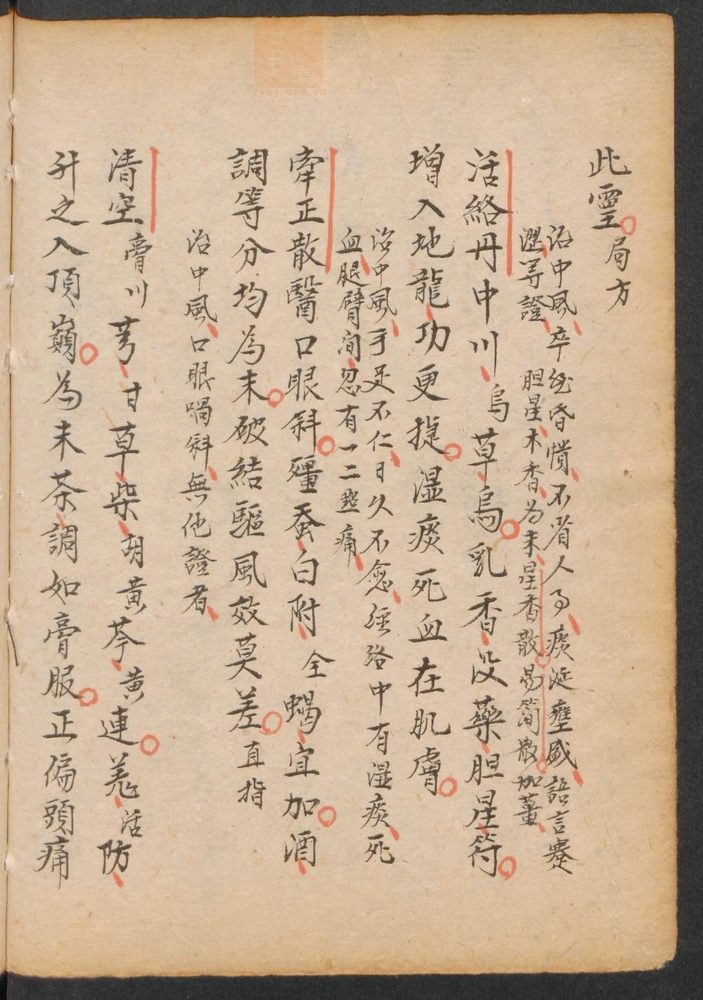 此靈局方
治中風卒然昏憒不省人事痰涎壅盛語言蹇
澀等證 胆星木香為末星香散易簡散加薑
活絡丹中川烏草烏乳香沒藥胆星符
增入地龍功更捷湿痰死血在肌膚
治中風手足不仁日久不愈經絡中有湿痰死
血腿臂間忽有一二點痛
牽正散醫口眼斜殭蚕白附全蝎宜加酒
調等分均為末破結驅風效莫差直指
治中風口眼喎斜無他證者
清空膏川芎甘草柴胡黃芩黃連羌活防
升之入頂巔為末茶調如膏服正偏頭痛